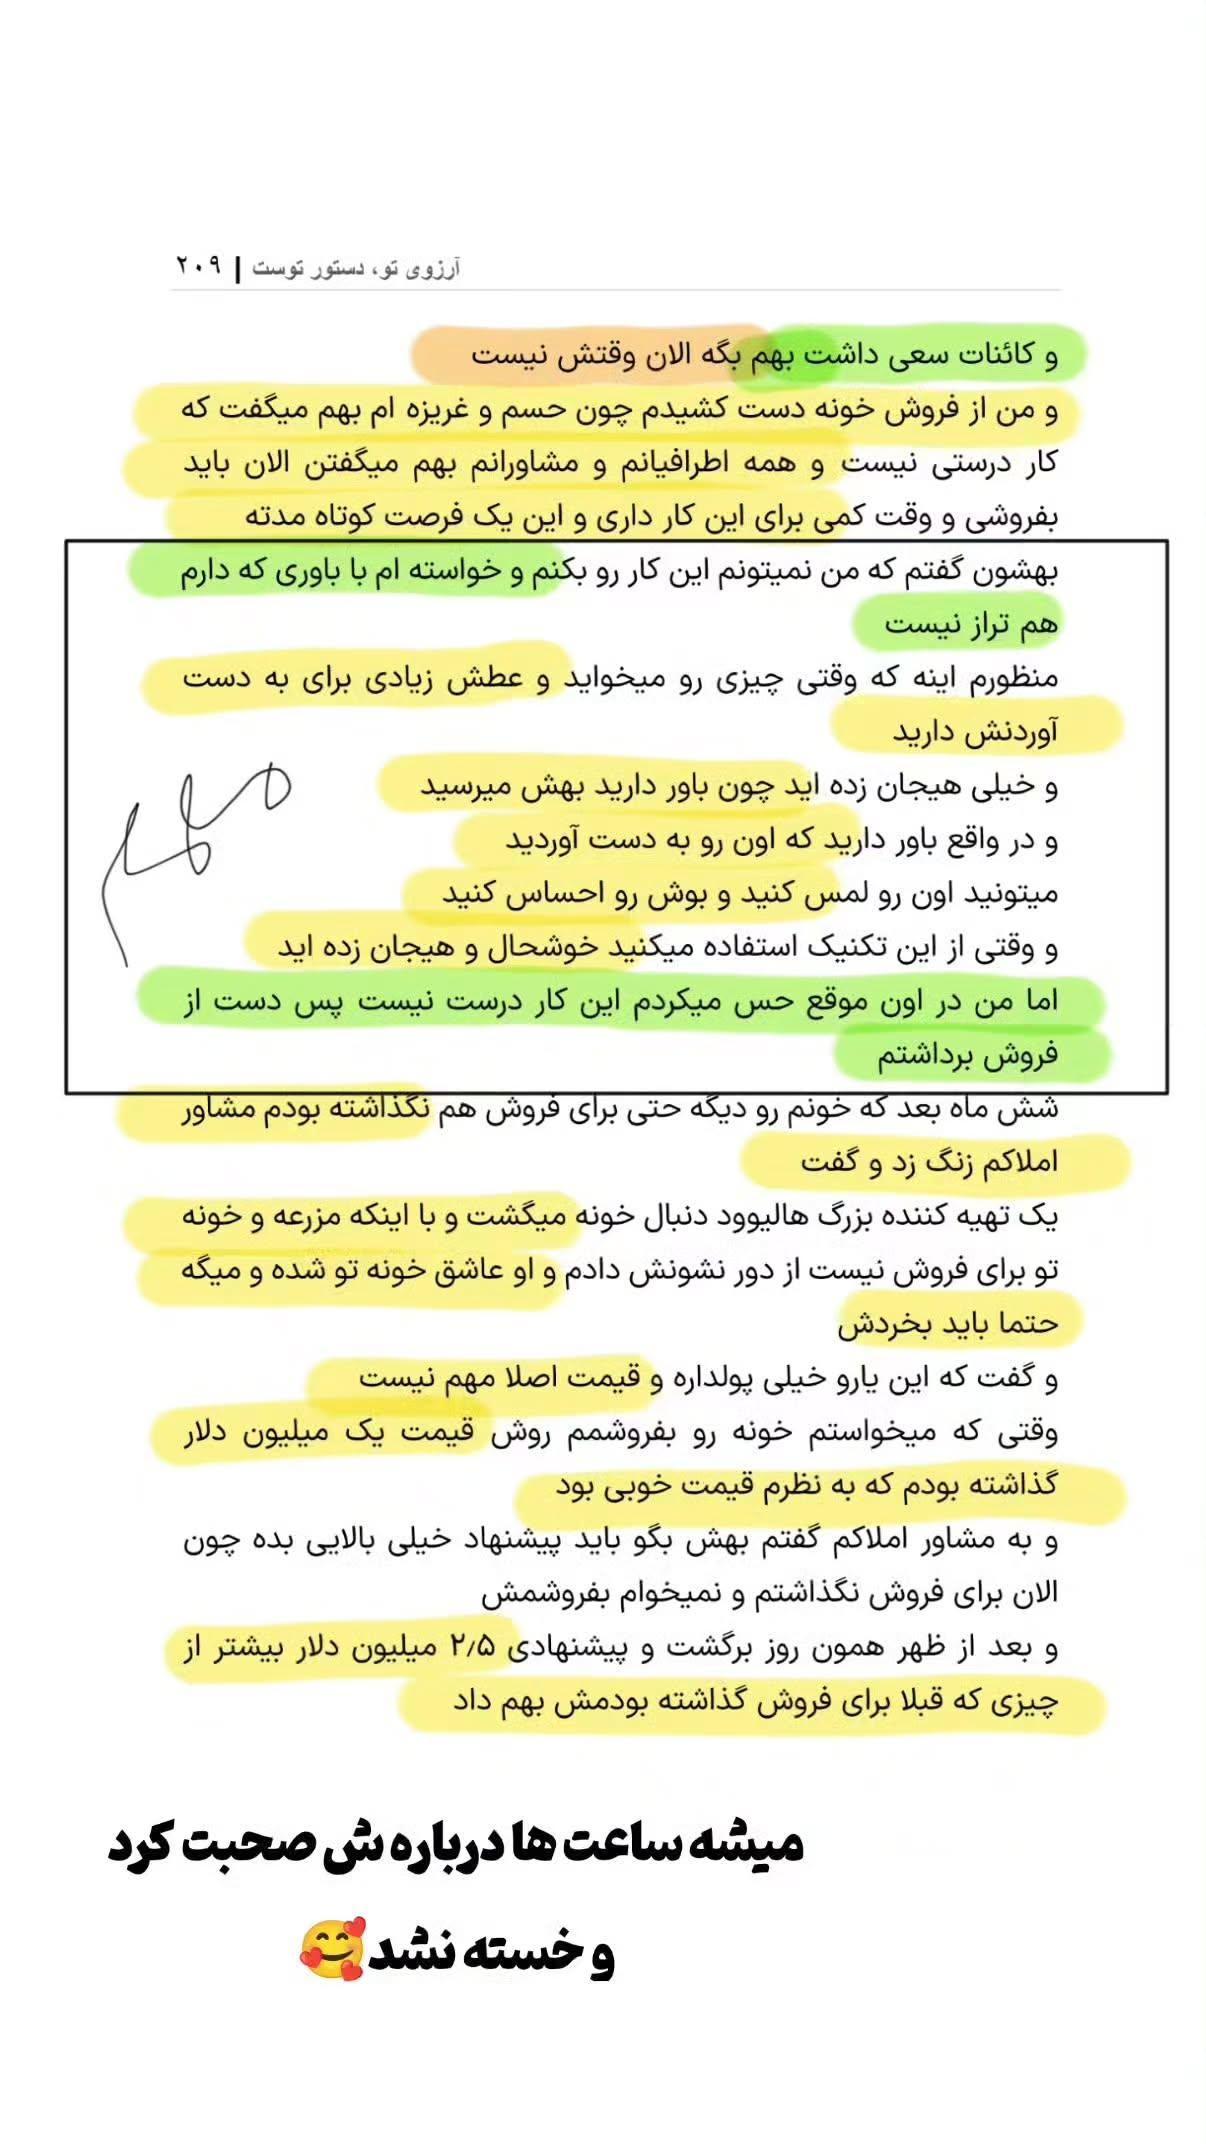 آرزوی تو، دستور توست | ۲۰۹
و کائنات سعی داشت بهم بگه الان وقتش نیست
و من از فروش خونه دست کشیدم چون حسم و غریزه ام بهم میگفت که
کار درستی نیست و همه اطرافیانم و مشاورانم بهم میگفتن الان باید
بفروشی و وقت کمی برای این کار داری و این یک فرصت کوتاه مدته
بهشون گفتم که من نمیتونم این کار رو بکنم و خواسته ام با باوری که دارم
هم تراز نیست
منظورم اینه که وقتی چیزی رو میخواید و عطش زیادی برای به دست
آوردنش دارید
و خیلی هیجان زده اید چون باور دارید بهش میرسید
و در واقع باور دارید که اون رو به دست آوردید
میتونید اون رو لمس کنید و بوش رو احساس کنید
و وقتی از این تکنیک استفاده میکنید خوشحال و هیجان زده اید
اما من در اون موقع حس میکردم این کار درست نیست پس دست از
فروش برداشتم
شش ماه بعد که خونم رو دیگه حتی برای فروش هم نگذاشته بودم مشاور
املاکم زنگ زد و گفت
یک تهیه کننده بزرگ هالیوود دنبال خونه میگشت و با اینکه مزرعه و خونه
تو برای فروش نیست از دور نشونش دادم و او عاشق خونه تو شده و میگه
حتما باید بخردش
و گفت که این یارو خیلی پولداره و قیمت اصلا مهم نیست
وقتی که میخواستم خونه رو بفروشمم روش قیمت یک میلیون دلار
گذاشته بودم که به نظرم قیمت خوبی بود
و به مشاور املاکم گفتم بهش بگو باید پیشنهاد خیلی بالایی بده چون
الان برای فروش نگذاشتم و نمیخوام بفروشمش
و بعد از ظهر همون روز برگشت و پیشنهادی ۲/۵ میلیون دلار بیشتر از
چیزی که قبلا برای فروش گذاشته بودمش بهم داد
میشه ساعت ها درباره ش صحبت کرد
و خسته نشد🥰